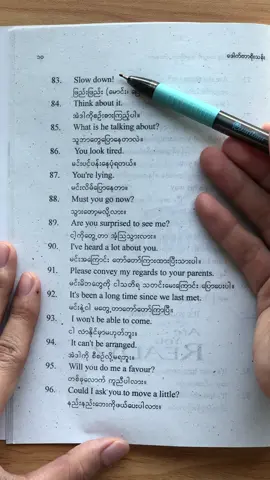 မဒါက်တာစိုးသန်း
83. Slow down!
ဖြည်းဖြည်း (မောင်း၊
84. Think about it.
အဲဒါကိုစဉ်းစားကြည့်ပါ။
85. What is he talking about?
သူဘာတွေပြောနေတာလဲ။
86. You look tired.
မင်းပင်ပန်းနေပုံရတယ်။
87. You're lying.
မင်းလိမ်ပြောနေတာ။
88. Must you go now?
သွားတော့မလို့လား။
89. Are you surprised to see me?
ငါ့ကိုတွေ့တာ အံ့ဩသွားလား။
90. I've heard a lot about you.
မင်းအကြောင်း တော်တော်ကြားထားပြီးသားပါ။
91. Please convey my regards to your parents.
မင်းမိဘတွေကို ငါသတိရ သတင်းမေးကြောင်း ပြောပေးပါ။
92. It's been a long time since we last met.
မင်းနဲ့ငါ မတွေ့တာတော်တော်ကြာပြီ။
93. I won't be able to come.
ငါ လာနိုင်မှာမဟုတ်ဘူး။
94. It can't be arranged.
အဲဒါကို စီစဉ်လို့မရဘူး။
95. Will you do me a favour?
တစ်ခုလောက် ကူညီပါလား။
96. Could I ask you to move a little?
နည်းနည်းဘေးကိုဖယ်ပေးပါလား။